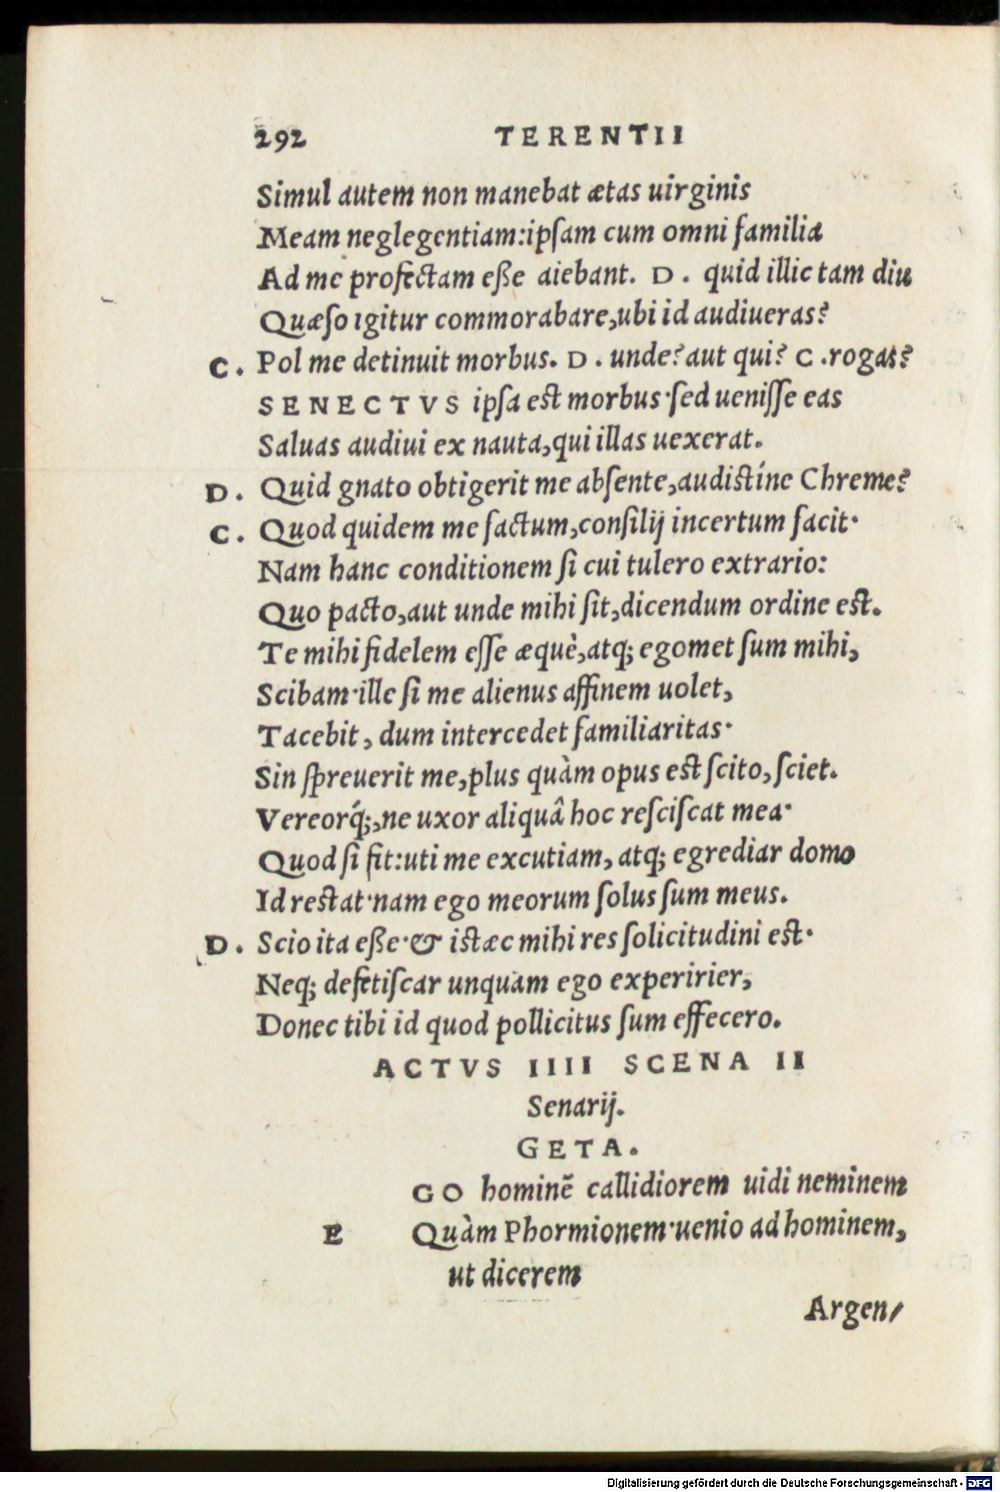 292 TERENTII
Simul autem non manebat ætas uirginis
Meam neglegentiam:ipſam cum omni familia
Ad me profectam eße aiebant. D. quid illic tam diu
Quæſo igitur commorabare,ubi id audiueras?
C. Pol me detinuit morbus. D. unde? aut qui? C. rogas?
SENECTVS ipſa est morbus·ſed ueniſſe eas
Saluas audiui ex nauta,qui illas uexerat.
D. Quid gnato obtigerit me abſente,audistíne Chreme?
C. Quod quidem me factum,conſilij incertum facit·
Nam hanc conditionem ſi cui tulero extrario:
Quo pacto,aut unde mihi ſit,dicendum ordine est.
Te mihi fidelem eſſe æquè,atq; egomet ſum mihi,
Scibam·ille ſi me alienus affinem uolet,
Tacebit, dum intercedet familiaritas·
Sin ſpreuerit me,plus quàm opus est ſcito,ſciet.
Vereorq́;,ne uxor aliquâ hoc reſciſcat mea·
Quod ſi fit:uti me excutiam, atq; egrediar domo
Id restat·nam ego meorum ſolus ſum meus.
D. Scio ita eße·& istæc mihi res ſolicitudini est·
Neq; defetiſcar unquam ego experirier,
Donec tibi id quod pollicitus ſum effecero.
ACTVS IIII SCENA II
Senarij.
GETA.
E GO hominē callidiorem uidi neminem
Quàm Phormionem·uenio ad hominem,
ut dicerem
Argen/
Digitalisierung gefördert durch die Deutsche Forschungsgemeinschaft - DFG